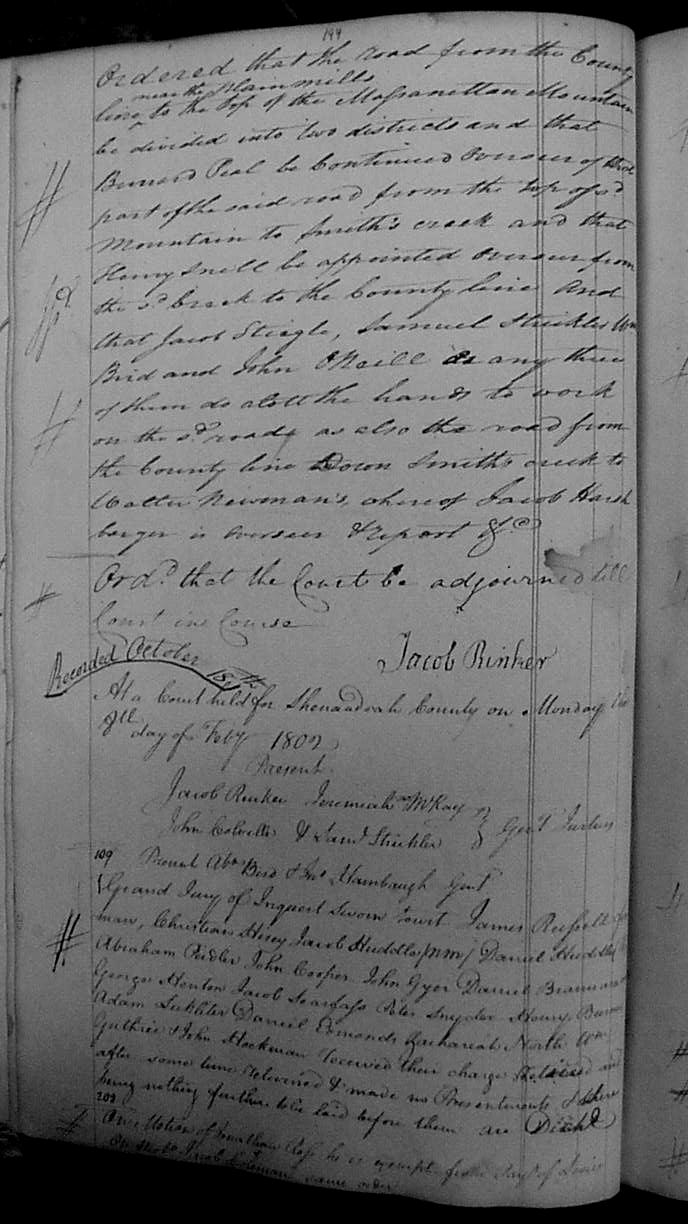 199
Ordered that the road from the County
near the Plain mills
line to the Top of the Massanettan Mountain
be divided into two districts and that
Bernard Peal be Continued Overseer of that
part of the said road from the top of sd
Mountain to Smith's creek and that
Henry Snell be appointed Overseer from
the sd Creek to the County line And
that Jacob Stiegle, Samuel Strickler Wm
Bird and John ONeill or any three
of them do alott the hands to work
on the sd road as also the road from
the County line Down Smiths creek to
Walter Newman's, whereof Jacob Harsh
barger is overseer & report &c
Ord. that the Court be adjourned till
Court in Course
Jacob Rinker
Recorded October 18th
At a Court held for Shenandoah County on Monday the
8th day of Feby 1802
Present
Jacob Rinker Jeremiah McKay
John Colville & Saml Strickler Gent Justices
109 Present Abm Bird & Jno Hambaugh Gent
Grand Jury of Inquest Sworn towit James Russell
man, Christian Hisey Jacob Huddle Daniel Huddle
Abraham Peidler John Cooper John Gyer Daniel
George Henton Jacob Peter Snyder Henry
Adam Daniel Edmonds Zachariah North Wm
Guthrie & John Hockman received their charge and
after some time returned & made no Presentments & there
being nothing further to be laid before them are Dischd
209
On Motion of Jonathan he is exempt from Paymt of Levies
On Moto Jacob same order